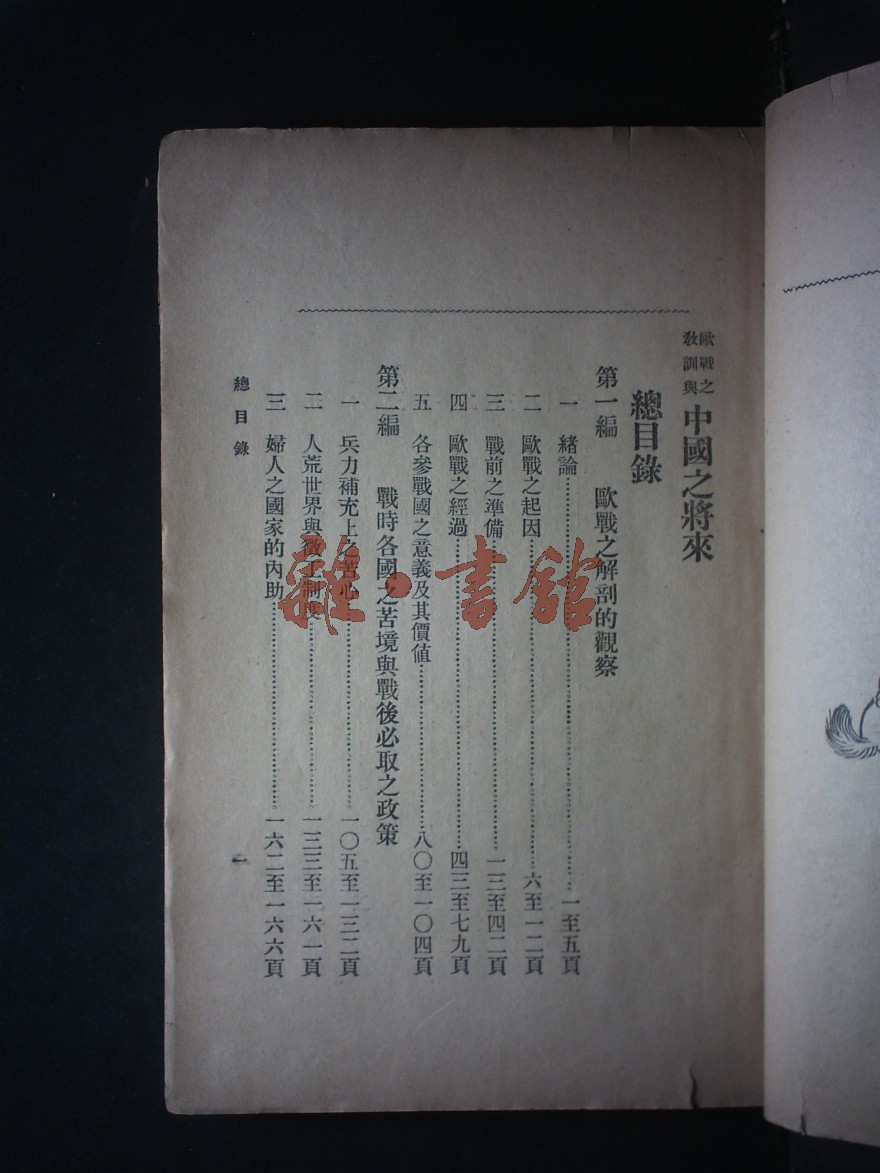 歐戰之
教訓與
中國之將來
總目錄
第一編　歐戰之解剖的觀察
一　緒論…………一至五頁
二　歐戰之起因…………六至一二頁
三　戰前之準備…………一三至四二頁
四　歐戰之經過…………四三至七九頁
五　各參戰國之意義及其價值…………八〇至一〇四頁
第二編　戰時各國之苦境與戰後必取之政策
一　兵力補充上之苦心…………一〇五至一三二頁
二　人荒世界與徵工制度…………一三三至一六一頁
三　婦人之國家的內助…………一六二至一六六頁
總目錄
一
雜·書館